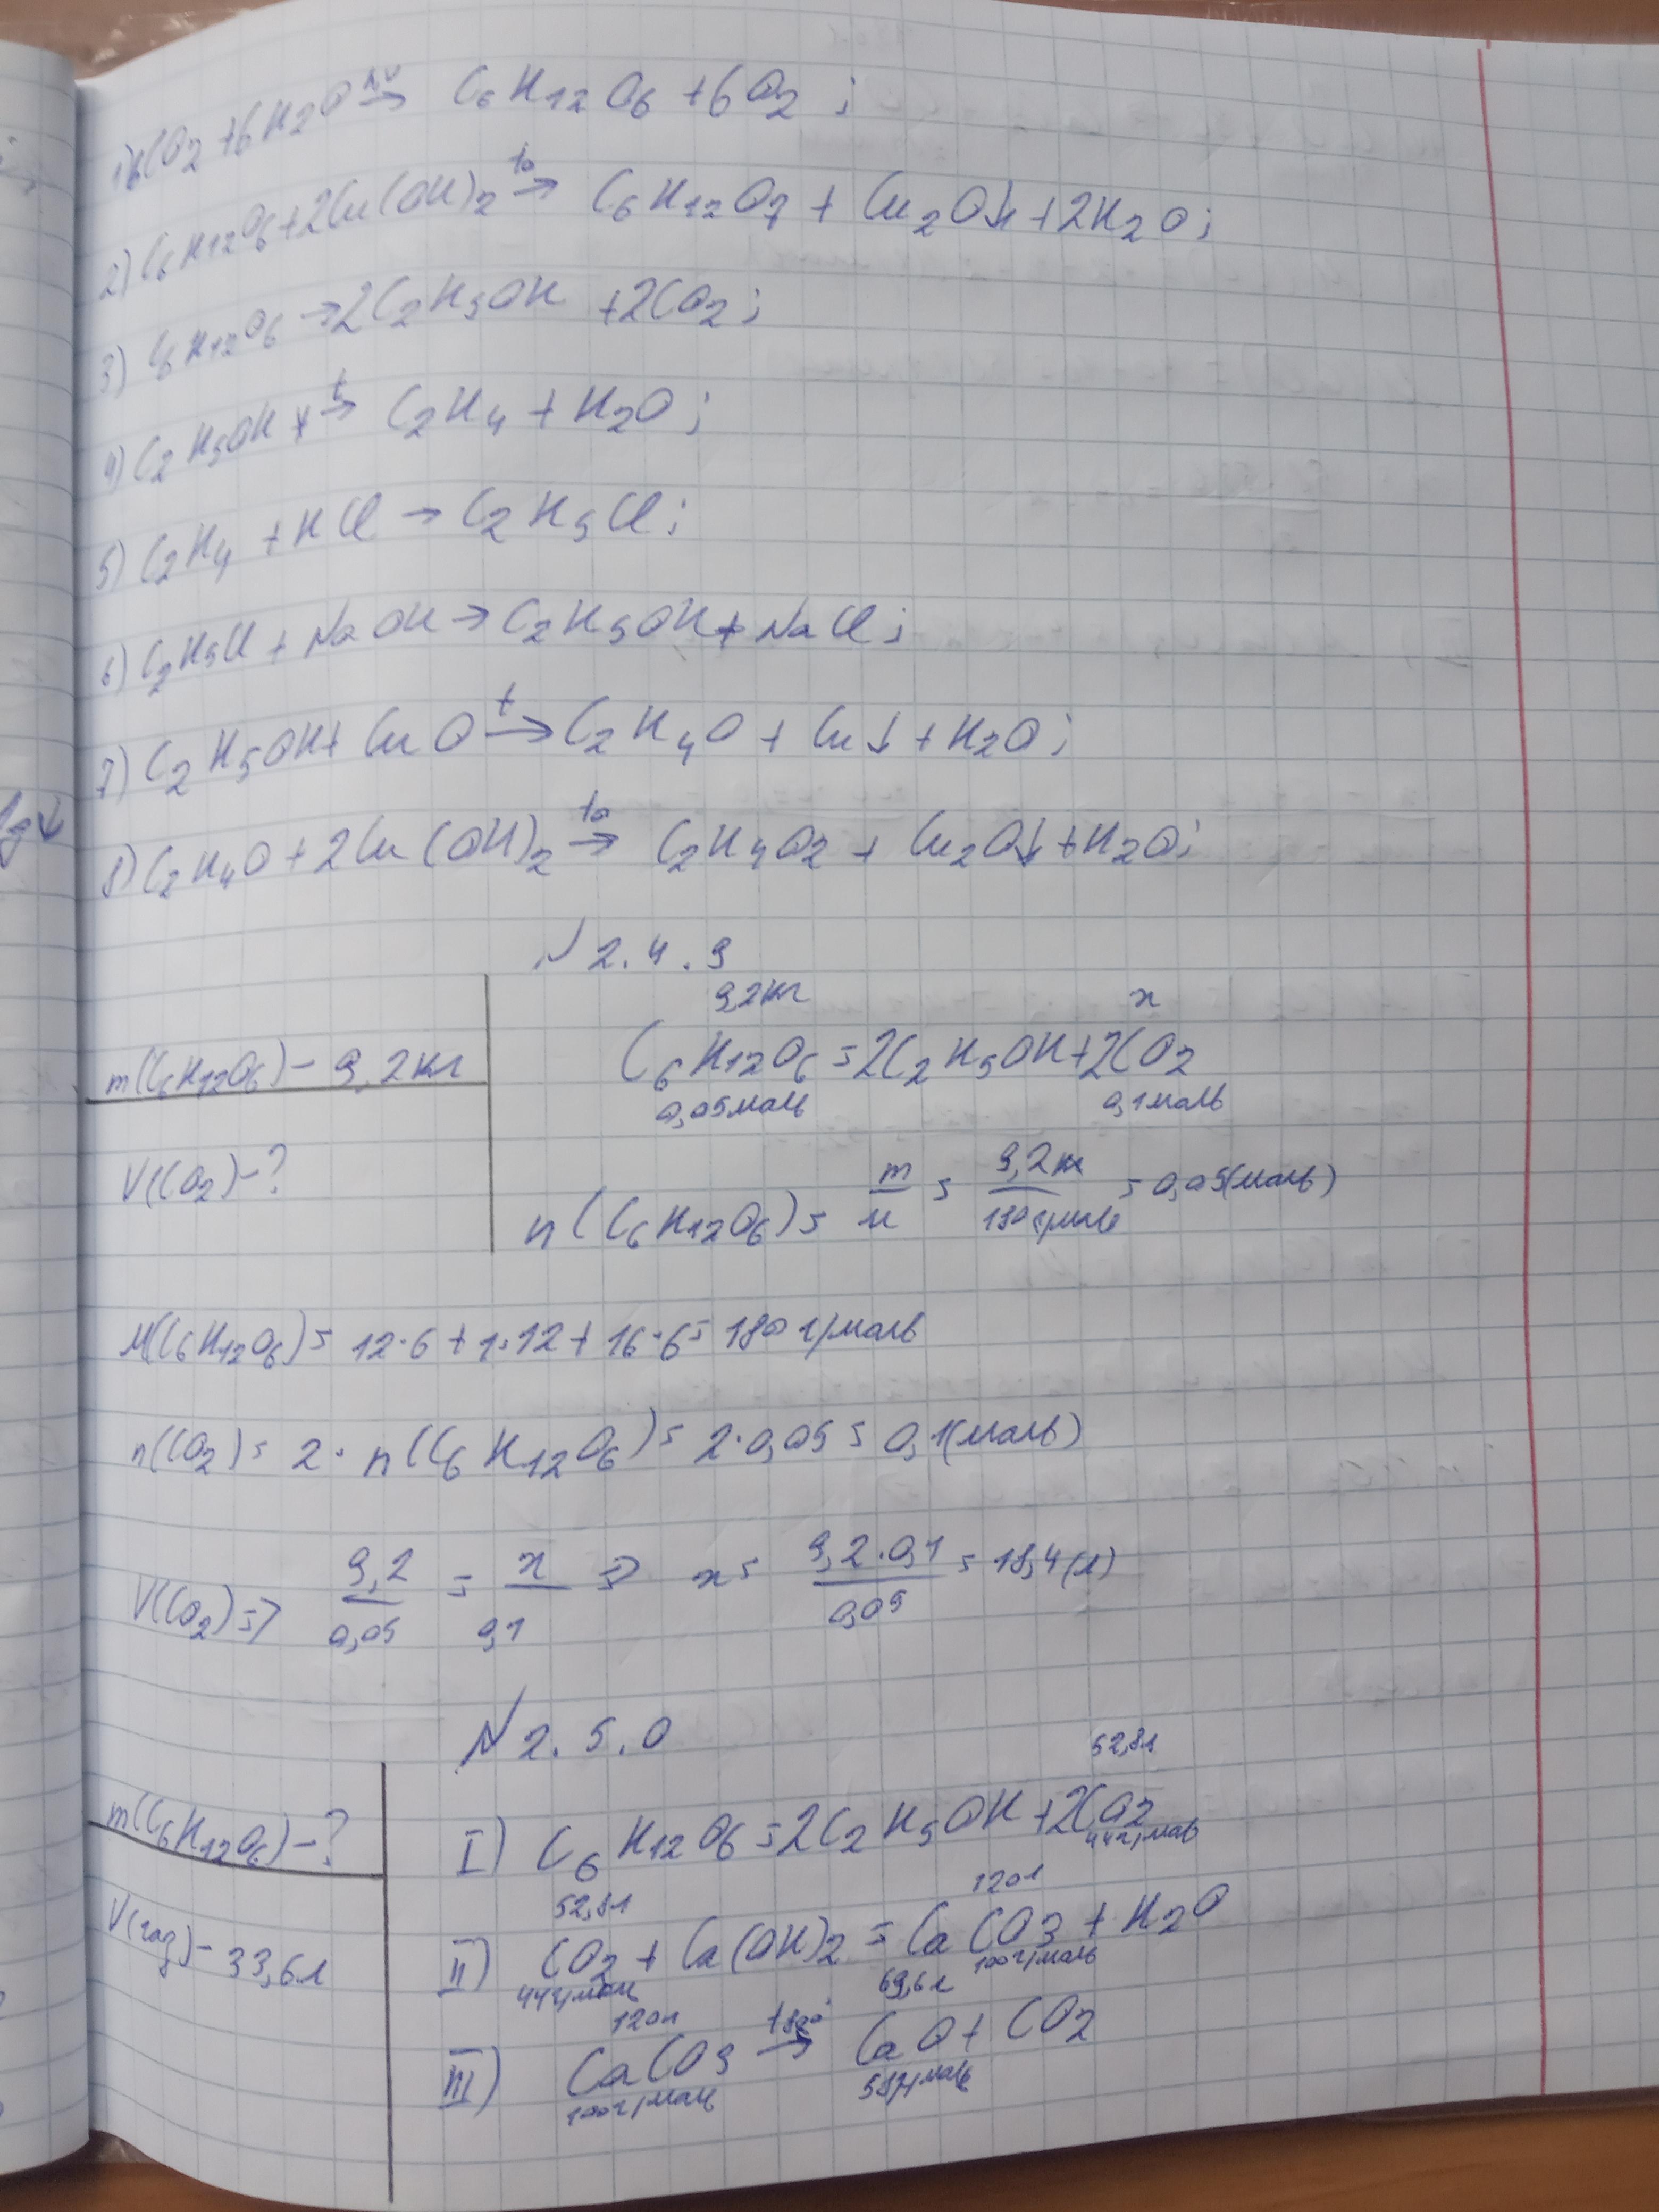 1) 6CO2 + 6H2O hν→ C6H12O6 + 6O2;
2) C6H12O6 + 2Cu(OH)2 t°→ C6H12O7 + Cu2O↓ + 2H2O;
3) C6H12O6 → 2C2H5OH + 2CO2;
4) C2H5OH t→ C2H4 + H2O;
5) C2H4 + HCl → C2H5Cl;
6) C2H5Cl + NaOH → C2H5OH + NaCl;
7) C2H5OH + CuO t→ C2H4O + Cu↓ + H2O;
8) C2H4O + 2Cu(OH)2 t°→ C2H4O2 + Cu2O↓ + H2O;
N 2.4.9
9,2кг x
m(C6H12O6) – 9,2кг C6H12O6 = 2C2H5OH + 2CO2
0,05моль 0,1моль
V(CO2) – ? n(C6H12O6) = m/M = 9,2кг/180г/моль = 0,05(моль)
M(C6H12O6) = 12·6 + 1·12 + 16·6 = 180 г/моль
n(CO2) = 2· n(C6H12O6) = 2·0,05 = 0,1(моль)
V(CO2) => 9,2/0,05 = x/0,1 => x = 9,2·0,1/0,05 = 18,4(л)
N 2.5.0
52,8г
m(C6H12O6) – ? I) C6H12O6 = 2C2H5OH + 2CO2
44г/моль
52,8г 120г
V(газ) – 33,6л II) CO2 + Ca(OH)2 = CaCO3 + H2O
44г/моль 100г/моль
120г 69,6г
III) CaCO3 t→ CaO + CO2
100г/моль 58г/моль